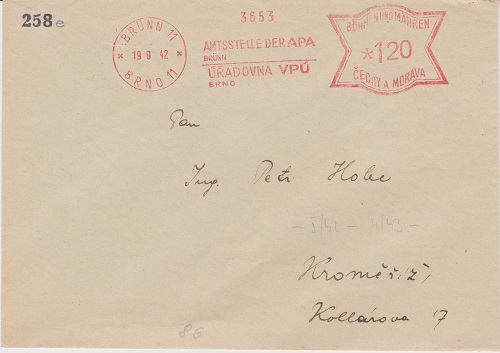 258e
3653
BRÜNN 11
19.9.42
BRNO 11
AMTSSTELLE DER APA
BRÜNN
ÚŘADOVNA VPÚ
BRNO
BÖHM. UND MÄHREN
*120
ČECHY A MORAVA
Pan
Ing. Petr Holec
- 5/42 - 4/43 -
Kroměříž,
Kollárova 17
86